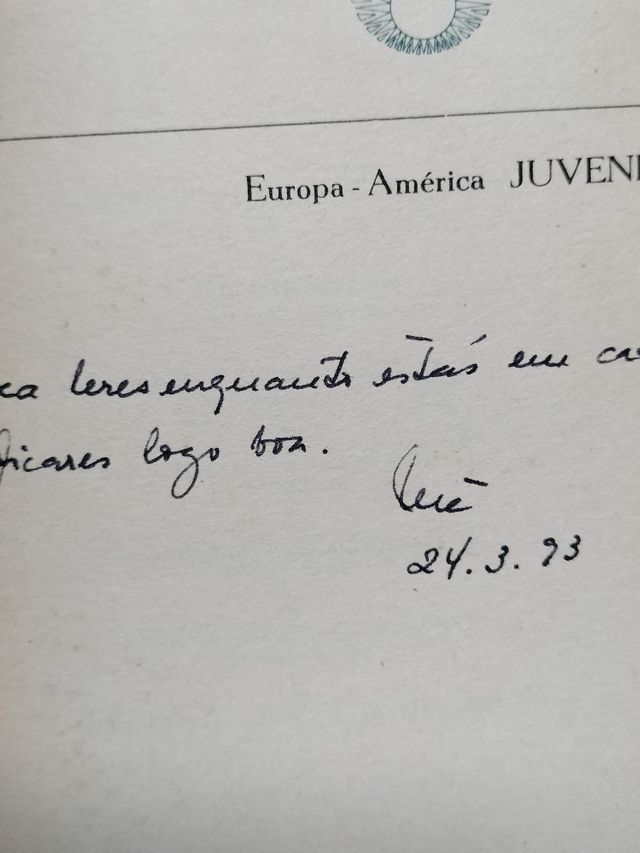 Europa - América JUVENI
ca leres enquanto estás em ca
ficares logo boa.
24.3.93